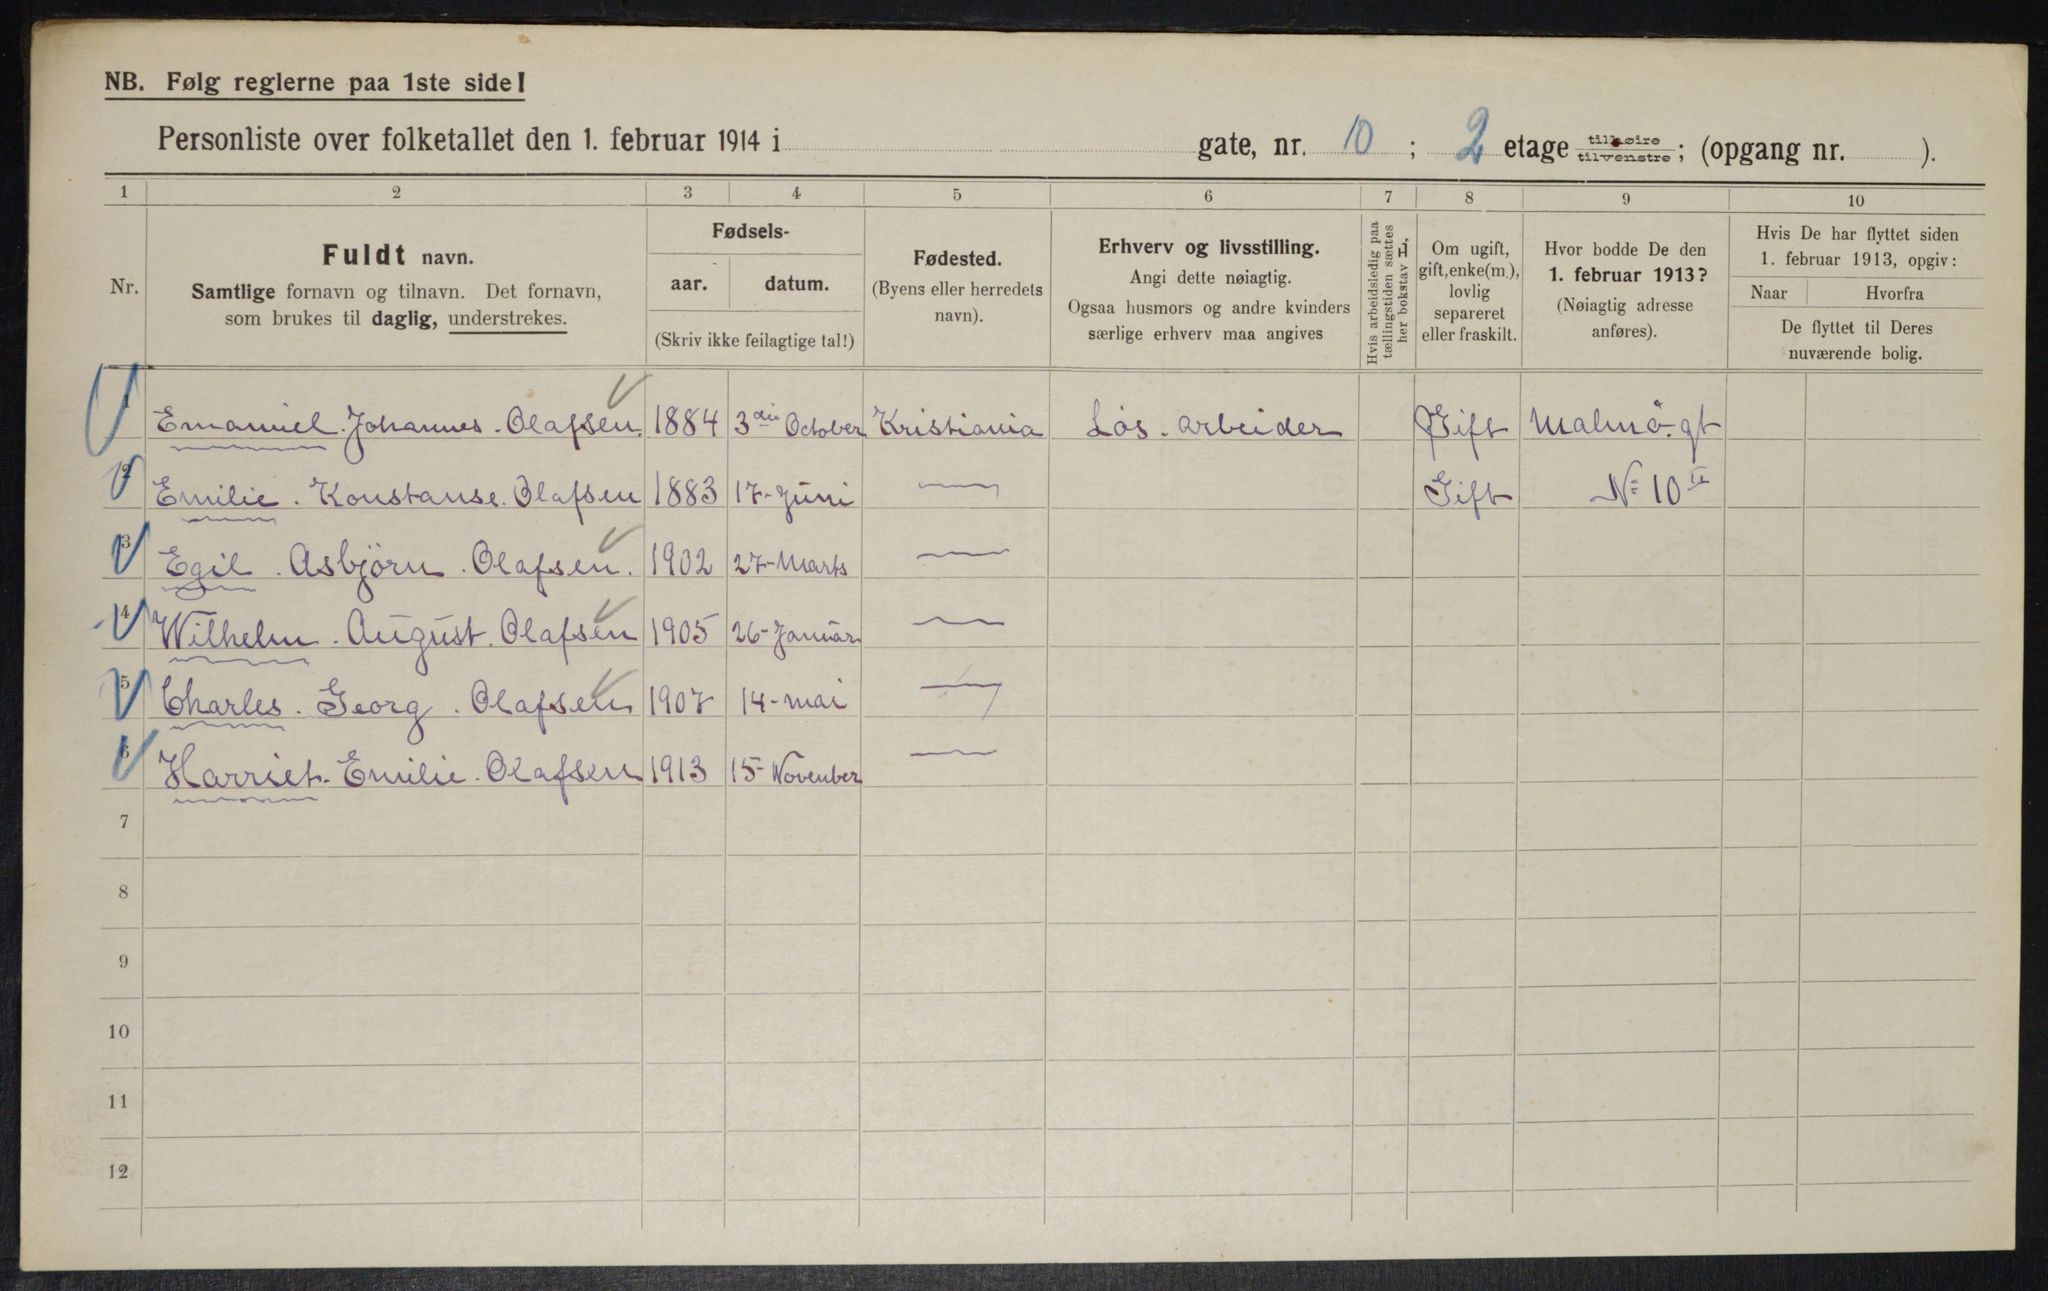 NB. Følg reglerne paa 1ste side!
Personliste over folketallet den 1. februar 1914 i gate, nr. 10 ; 2 etage tilhøire tilvenstre; (opgang nr. ).
1 2 3 4 5 6 7 8 9 10
Nr.
Fuldt navn.
Samtlige fornavn og tilnavn. Det fornavn,
som brukes til daglig, understrekes.
Fødsels-
aar. datum.
(Skriv ikke feilagtige tal!)
Fødested.
(Byens eller herredets
navn).
Erhverv og livsstilling.
Angi dette nøiagtig.
Ogsaa husmors og andre kvinders
særlige erhverv maa angives
Hvis arbeidsledig paa
tællingstiden sættes
her bokstav L.
Om ugift,
gift, enke(m.),
lovlig
separeret
eller fraskilt.
Hvor bodde De den
1. februar 1913?
(Nøiagtig adresse
anføres).
Hvis De har flyttet siden
1. februar 1913, opgiv:
Naar Hvorfra
De flyttet til Deres
nuværende bolig.
1 Emanuel. Johannes. Olafsen. 1884 3die October Kristiania Løs. arbeider Gift Malmö.gt
2 Emilie. Konstanse. Olafsen 1883 17-Juni — Gift No 10 II
3 Egil. Asbjörn. Olafsen. 1902 27-Marts —
4 Wilhelm. August. Olafsen 1905 26-Januar —
5 Charles. Georg. Olafsen 1907 14-mai —
6 Harriet. Emilie. Olafsen 1913 15-November —
7
8
9
10
11
12